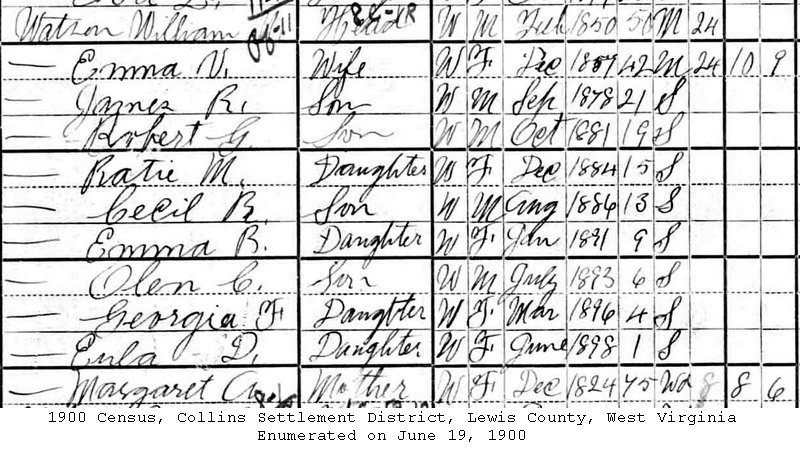 Watson William Head W M Feb 1850 50 M 24
— Emma V. Wife W F Dec 1857 42 M 24 10 9
— James R. Son W M Sep 1878 21 S
— Robert G Son W M Oct 1881 19 S
— Katie M. Daughter W F Dec 1884 15 S
— Cecil B. Son W M Aug 1886 13 S
— Emma B. Daughter W F Jan 1891 9 S
— Olen C. Son W M July 1893 6 S
— Georgia F Daughter W F Mar 1896 4 S
— Eula D. Daughter W F June 1898 1 S
— Margaret A. Mother W F Dec 1824 75 Wd 8 8 6
1900 Census, Collins Settlement District, Lewis County, West Virginia
Enumerated on June 19, 1900